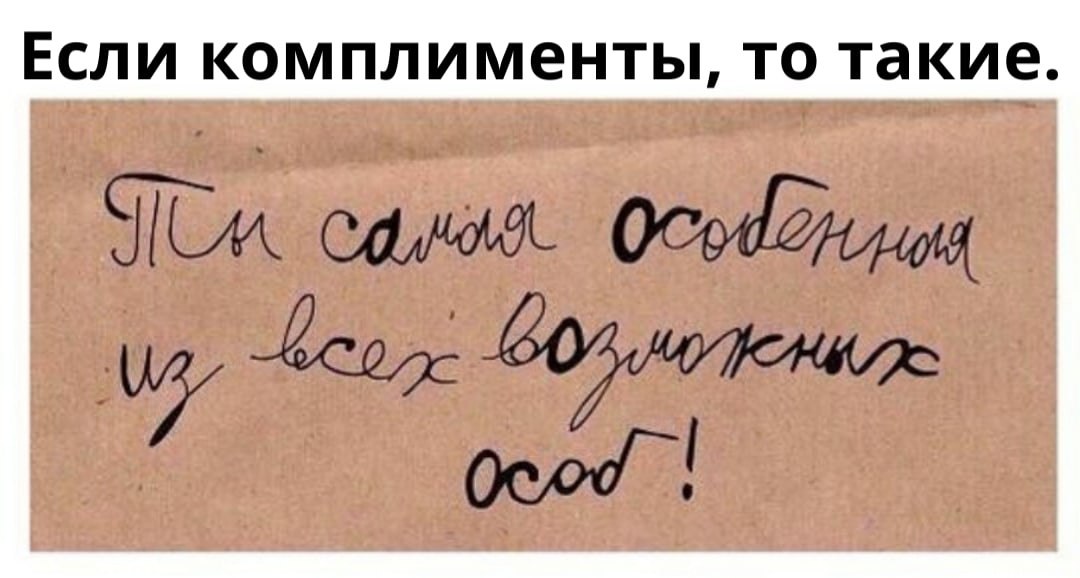 Если комплименты, то такие.
Ты самая особенная
из всех возможных
особ!